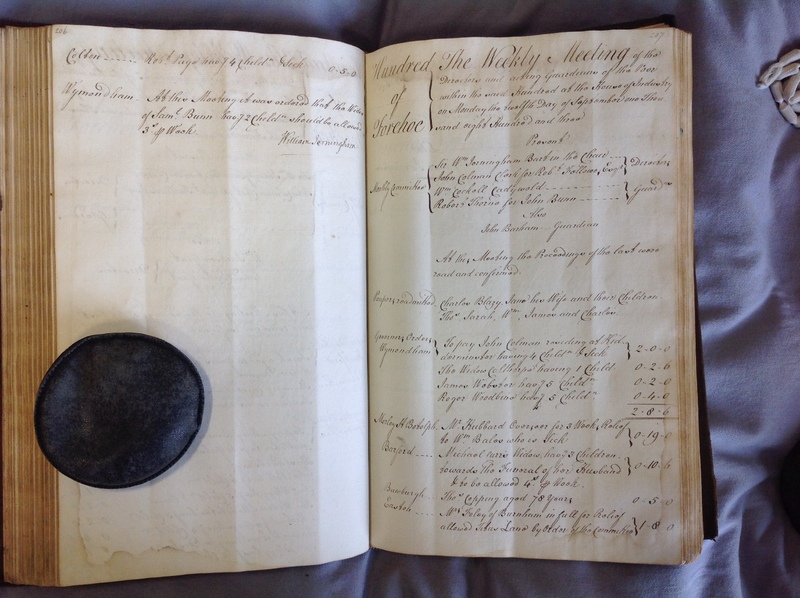 206
Colton ------ Robt. Page hav.g 4 Childn. & Sick 0-5-0
Wymondham At this Meeting it was ordered that the Widow
of Saml. Bunn hav.g 2 Childn. should be allowed
3s. p Week.
William Jerningham
207
Hundred of Forehoe
The Weekly Meeting of the
Directors and acting Guardians of the Poor
within the said Hundred at the House of Industry
on Monday the twelfth Day of September one Thou
sand eight Hundred and three
Present
Sir Wm. Jerningham Bart. in the Chair
John Colman Clerk for Robt. Fellowes Esqr. Directors
Weekly Committee Wm. Cockell
Robert Thorne for John Bunn Guardns
Also
John Barham Guardian
At this Meeting the Proceedings of the last were
read and confirmed.
Paupers readmitted Charles Blazy, Jane his Wife and their Children
Thos. Sarah, Wm. James and Charles.
Orders
Wymondham To pay John Colman residing at Kid-
derminster having 4 Childn. & Sick 2-0-0
The Widow having 1 Child 0-2-6
James Webster hav.g 5 Childn. 0-2-0
Roger Woodbine hav.g 5 Childn. 0-4-0
2-8-6
Morley St. Botolph Mr. Hubbard Overseer for 3 Weeks Relief
to Wm. Bales who is Sick 0-19-0
Barford ---- Michael Widow, hav.g 3 Children
towards the Funeral of her Husband 0-10-6
& to be allowed 4s. p Week.
Bawburgh -- Thos. Copping aged 78 Years 0-5-0
Easton ---- Mr. of Burnham in full for Relief
allowed Titus Lane by Order of the Committee 1-8-0